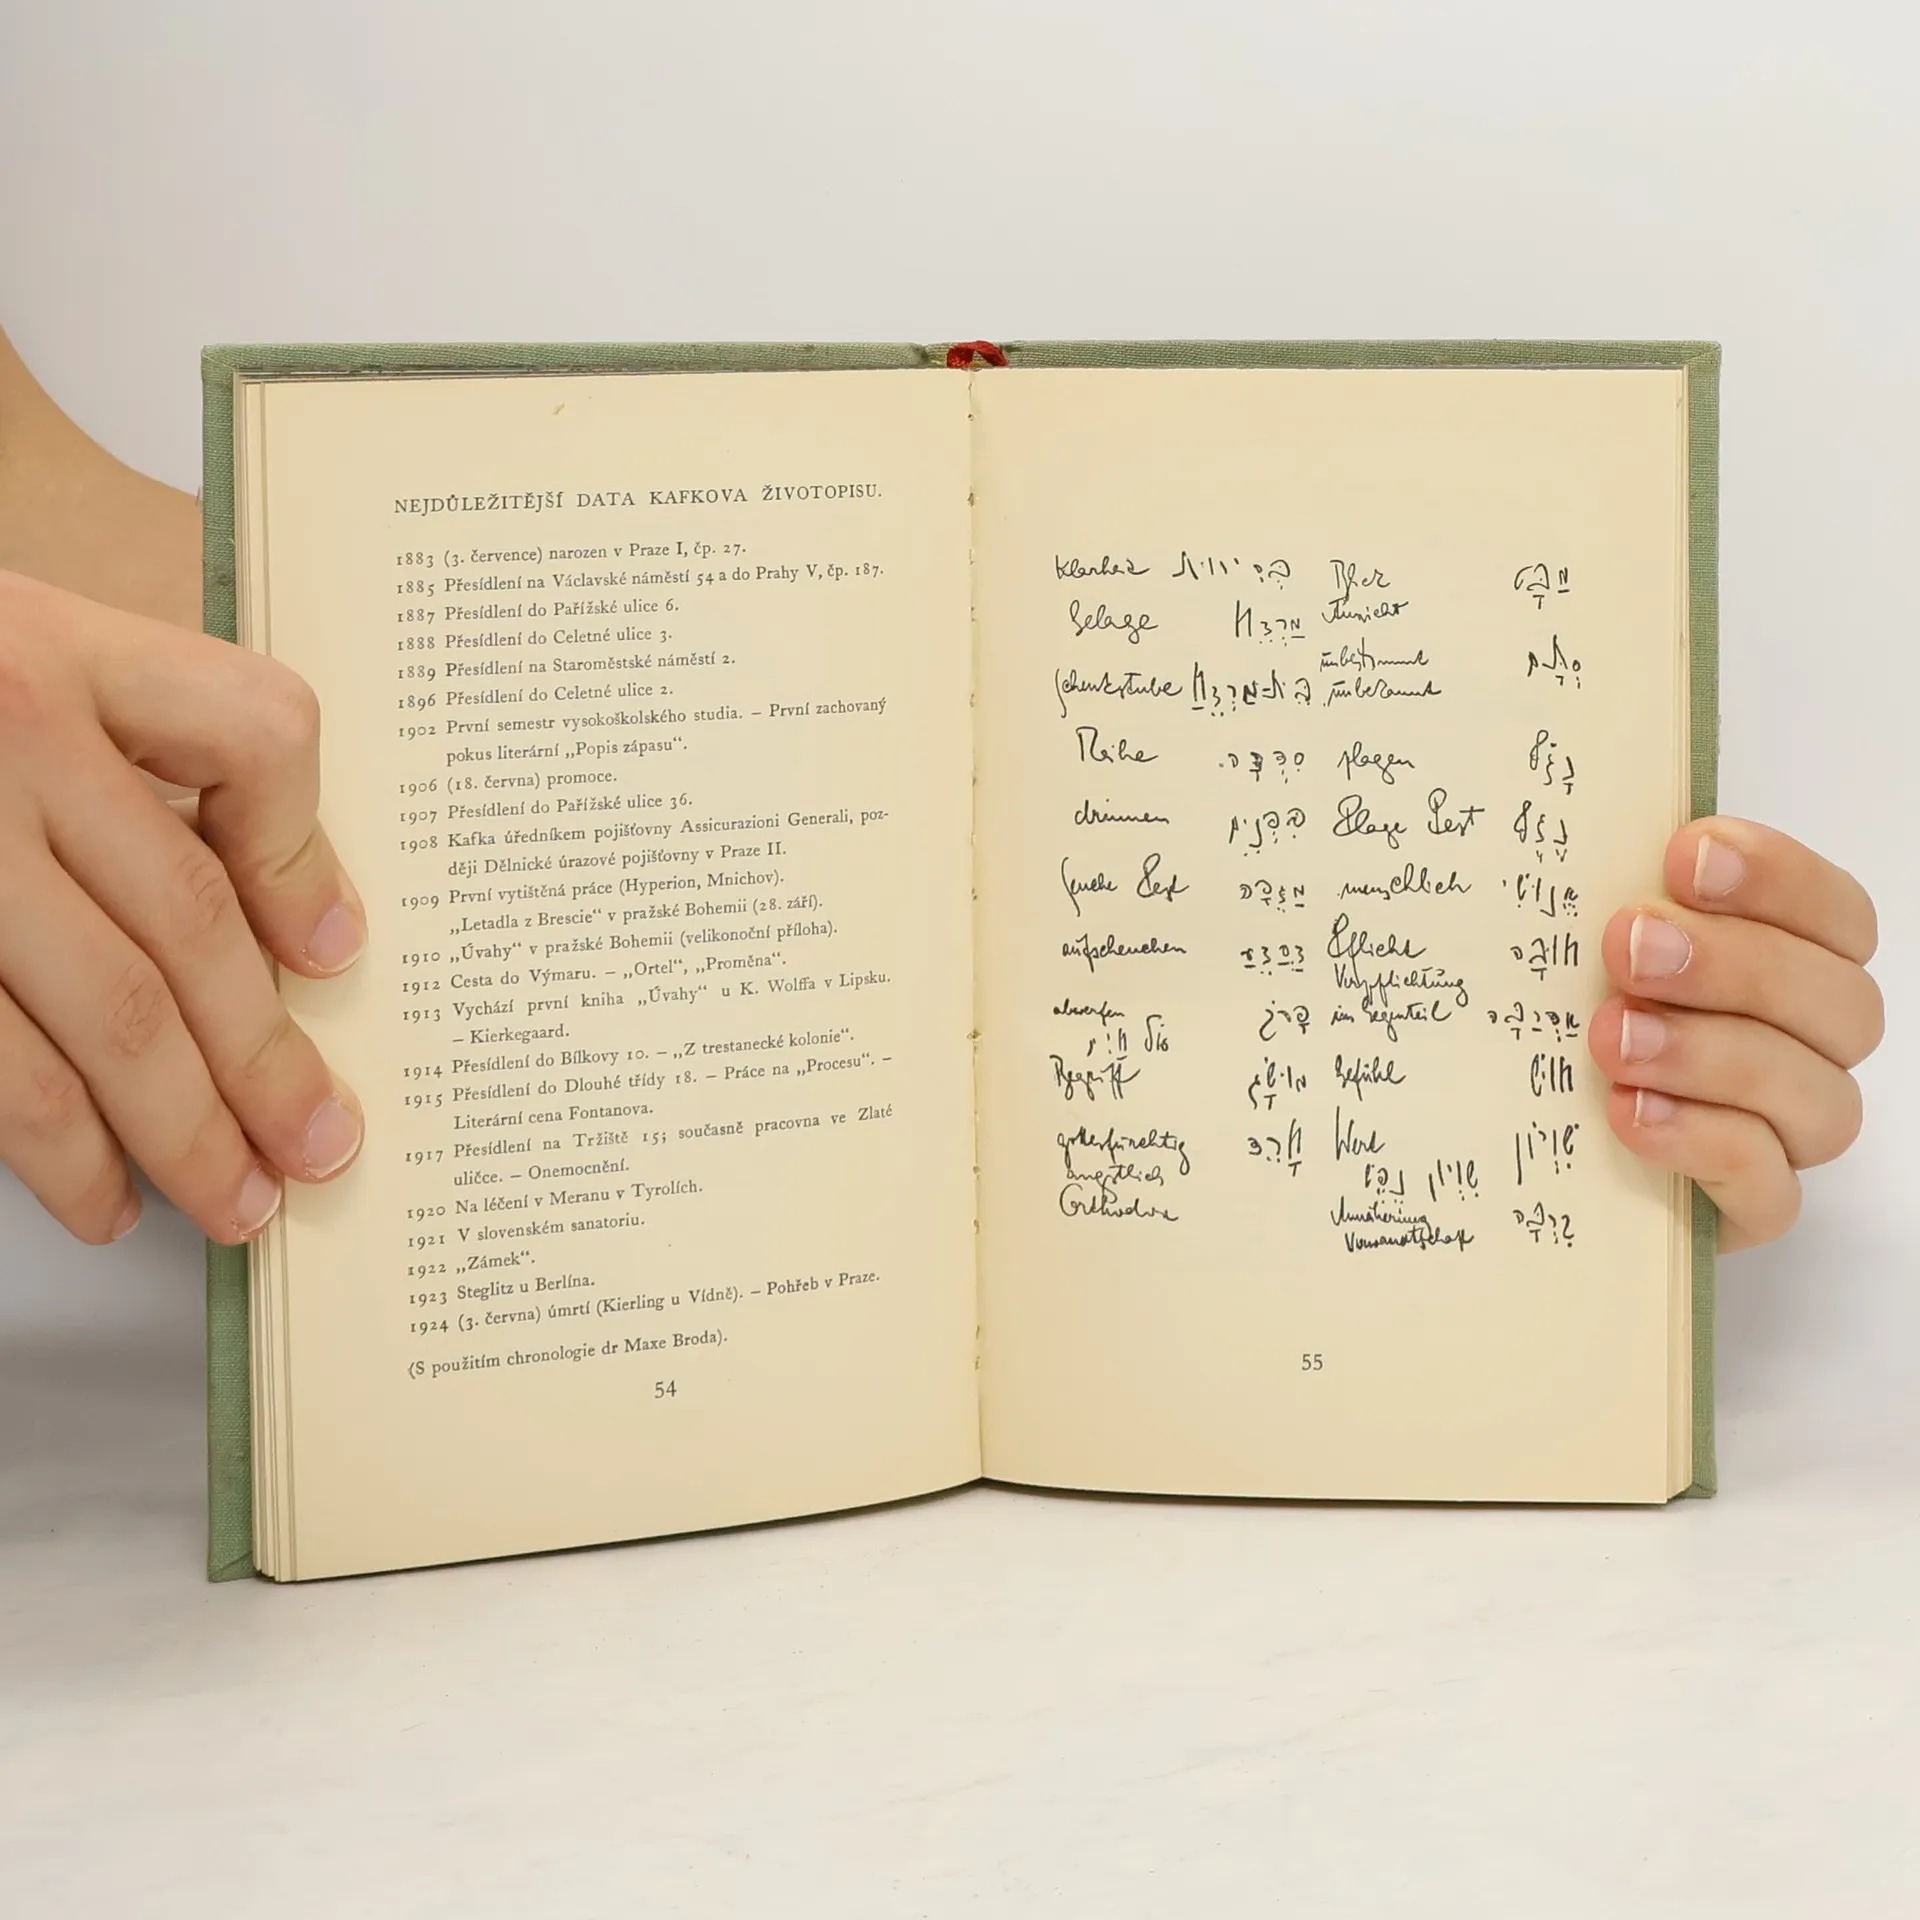 NEJDŮLEŽITĚJŠÍ DATA KAFKOVA ŽIVOTOPISU.
1883 (3. července) narozen v Praze I, čp. 27.
1885 Přesídlení na Václavské náměstí 54 a do Prahy V, čp. 187.
1887 Přesídlení do Pařížské ulice 6.
1888 Přesídlení do Celetné ulice 3.
1889 Přesídlení na Staroměstské náměstí 2.
1896 Přesídlení do Celetné ulice 2.
1902 První semestr vysokoškolského studia. – První zachovaný
pokus literární „Popis zápasu“.
1906 (18. června) promoce.
1907 Přesídlení do Pařížské ulice 36.
1908 Kafka úředníkem pojišťovny Assicurazioni Generali, poz-
ději Dělnické úrazové pojišťovny v Praze II.
1909 První vytištěná práce (Hyperion, Mnichov).
„Letadla z Brescie“ v pražské Bohemii (28. září).
1910 „Úvahy“ v pražské Bohemii (velikonoční příloha).
1912 Cesta do Výmaru. – „Ortel“, „Proměna“.
1913 Vychází první kniha „Úvahy“ u K. Wolffa v Lipsku.
– Kierkegaard.
1914 Přesídlení do Bílkovy 10. – „Z trestanecké kolonie“.
1915 Přesídlení do Dlouhé třídy 18. – Práce na „Procesu“. –
Literární cena Fontanova.
1917 Přesídlení na Tržiště 15; současně pracovna ve Zlaté
uličce. – Onemocnění.
1920 Na léčení v Meranu v Tyrolích.
1921 V slovenském sanatoriu.
1922 „Zámek“.
1923 Steglitz u Berlína.
1924 (3. června) úmrtí (Kierling u Vídně). – Pohřeb v Praze.
(S použitím chronologie dr Maxe Broda).
54
Klarheit
Gelage
Schenkstube
Reihe
drinnen
Seuche Pest
aufscheuchen
abwerfen
Begriff
gottesfürchtig
ängstlich
Orthodox
Blick מבט
Aussicht
unbestimmt
unbekannt
plagen
Plage Pest
menschlich
Pflicht חובה
Verpflichtung
im Gegenteil
Gefühl חוש
Wert
Annäherung קרבה
Verwandtschaft
55